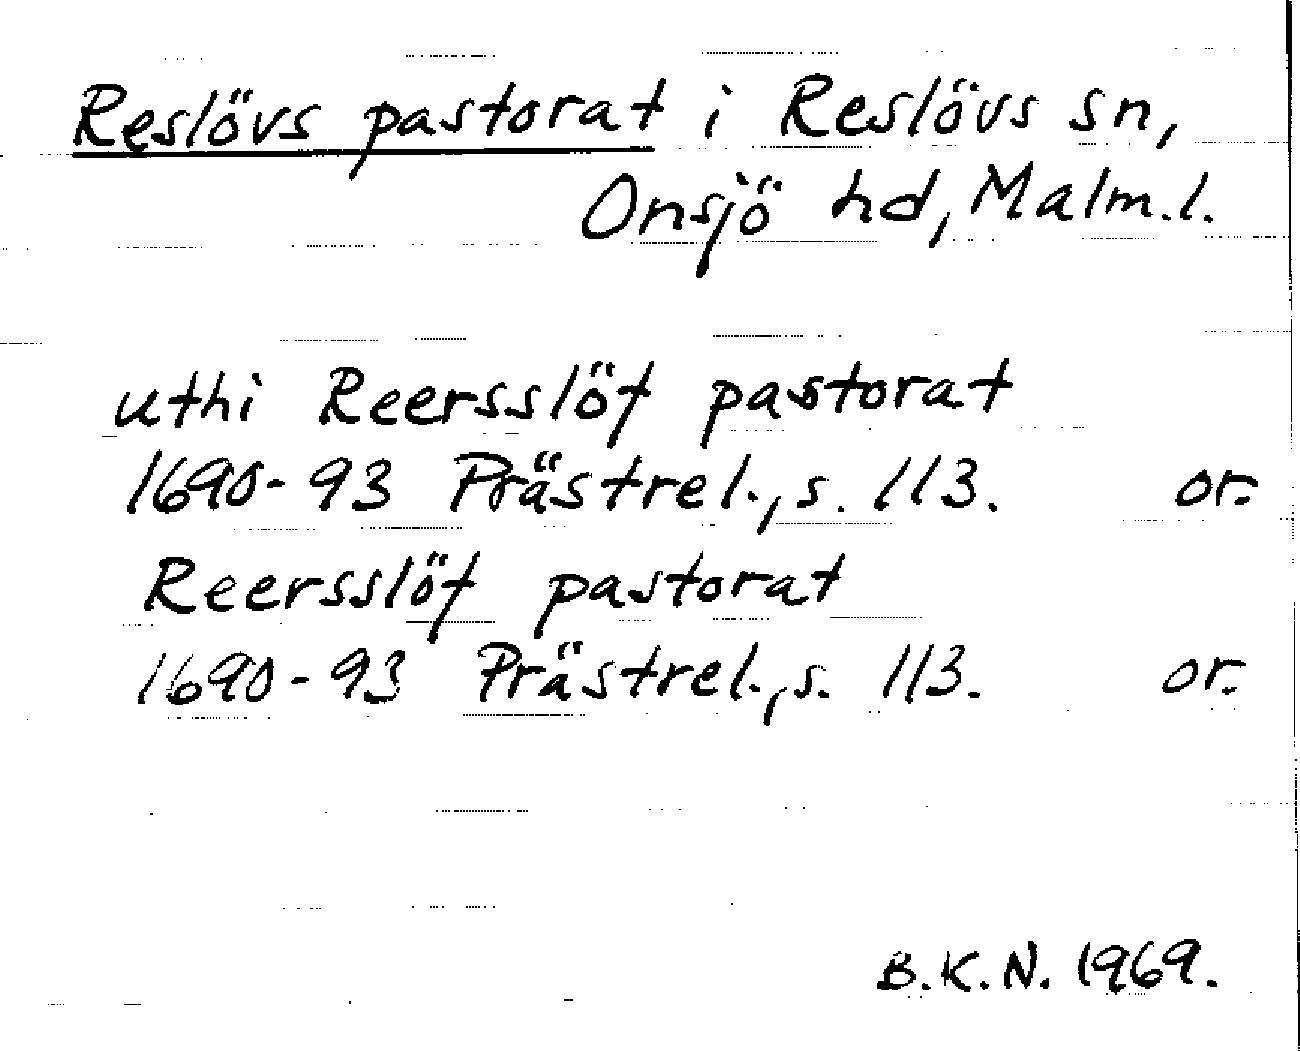 Reslövs pastorat i Reslövs sn,
Onsjö hd, Malm.l.
uthi Reersslöf pastorat
1690-93 Prästrel., s. 113. or.
Reersslöf pastorat
1690-93 Prästrel., s. 113. or.
B.K.N. 1969.